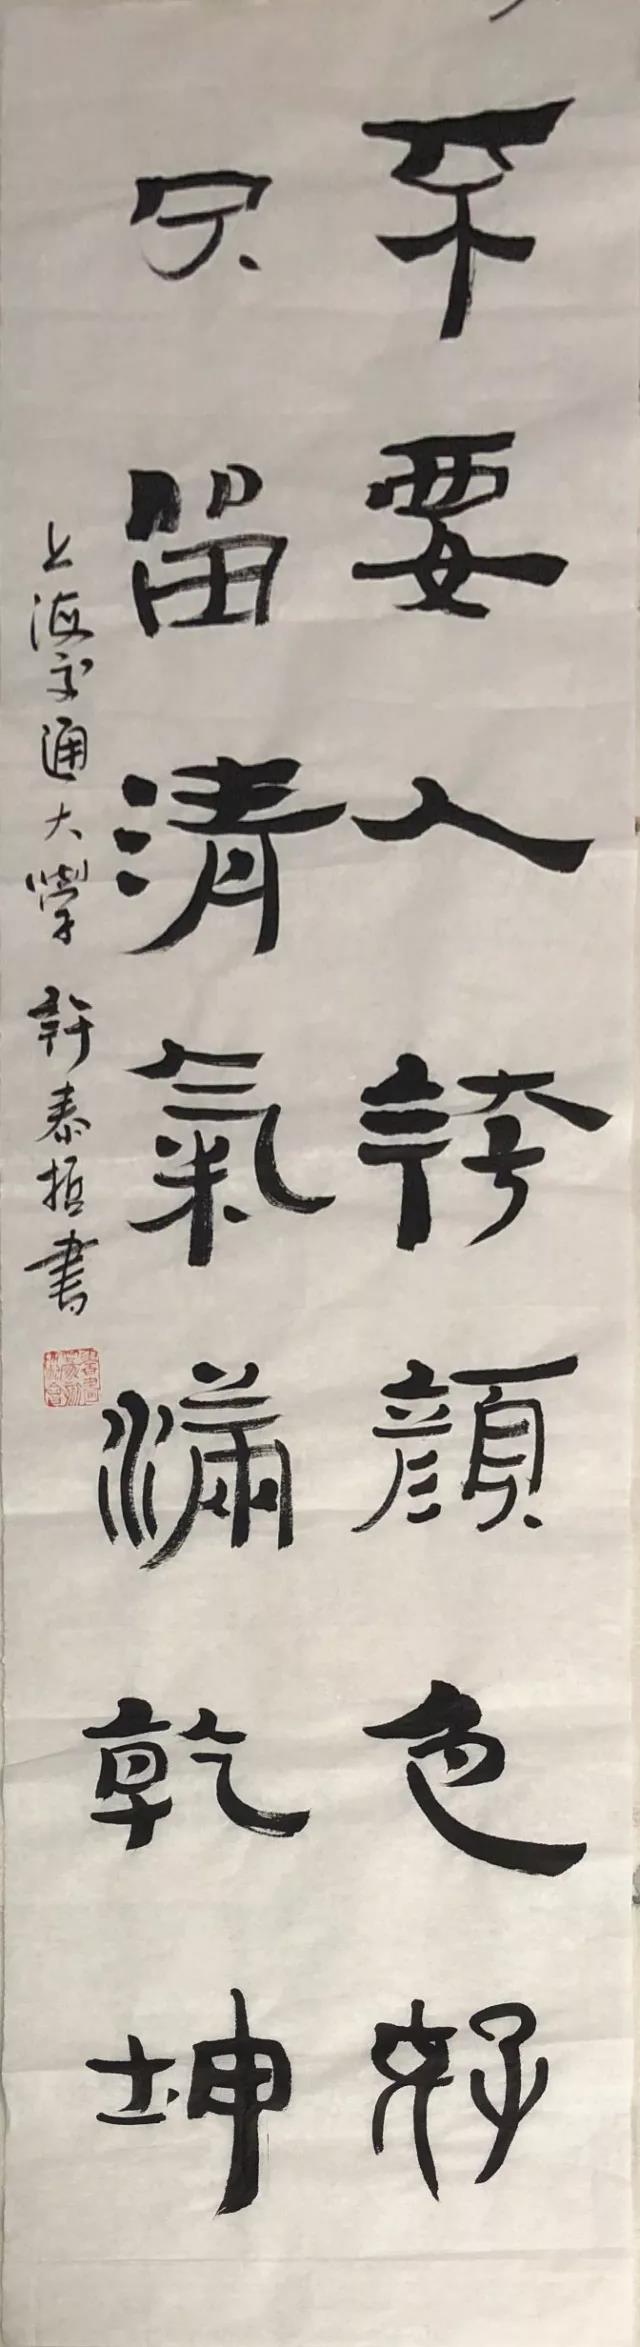 不要人誇顔色好
只留清氣滿乾坤
上海交通大學 許泰哲書